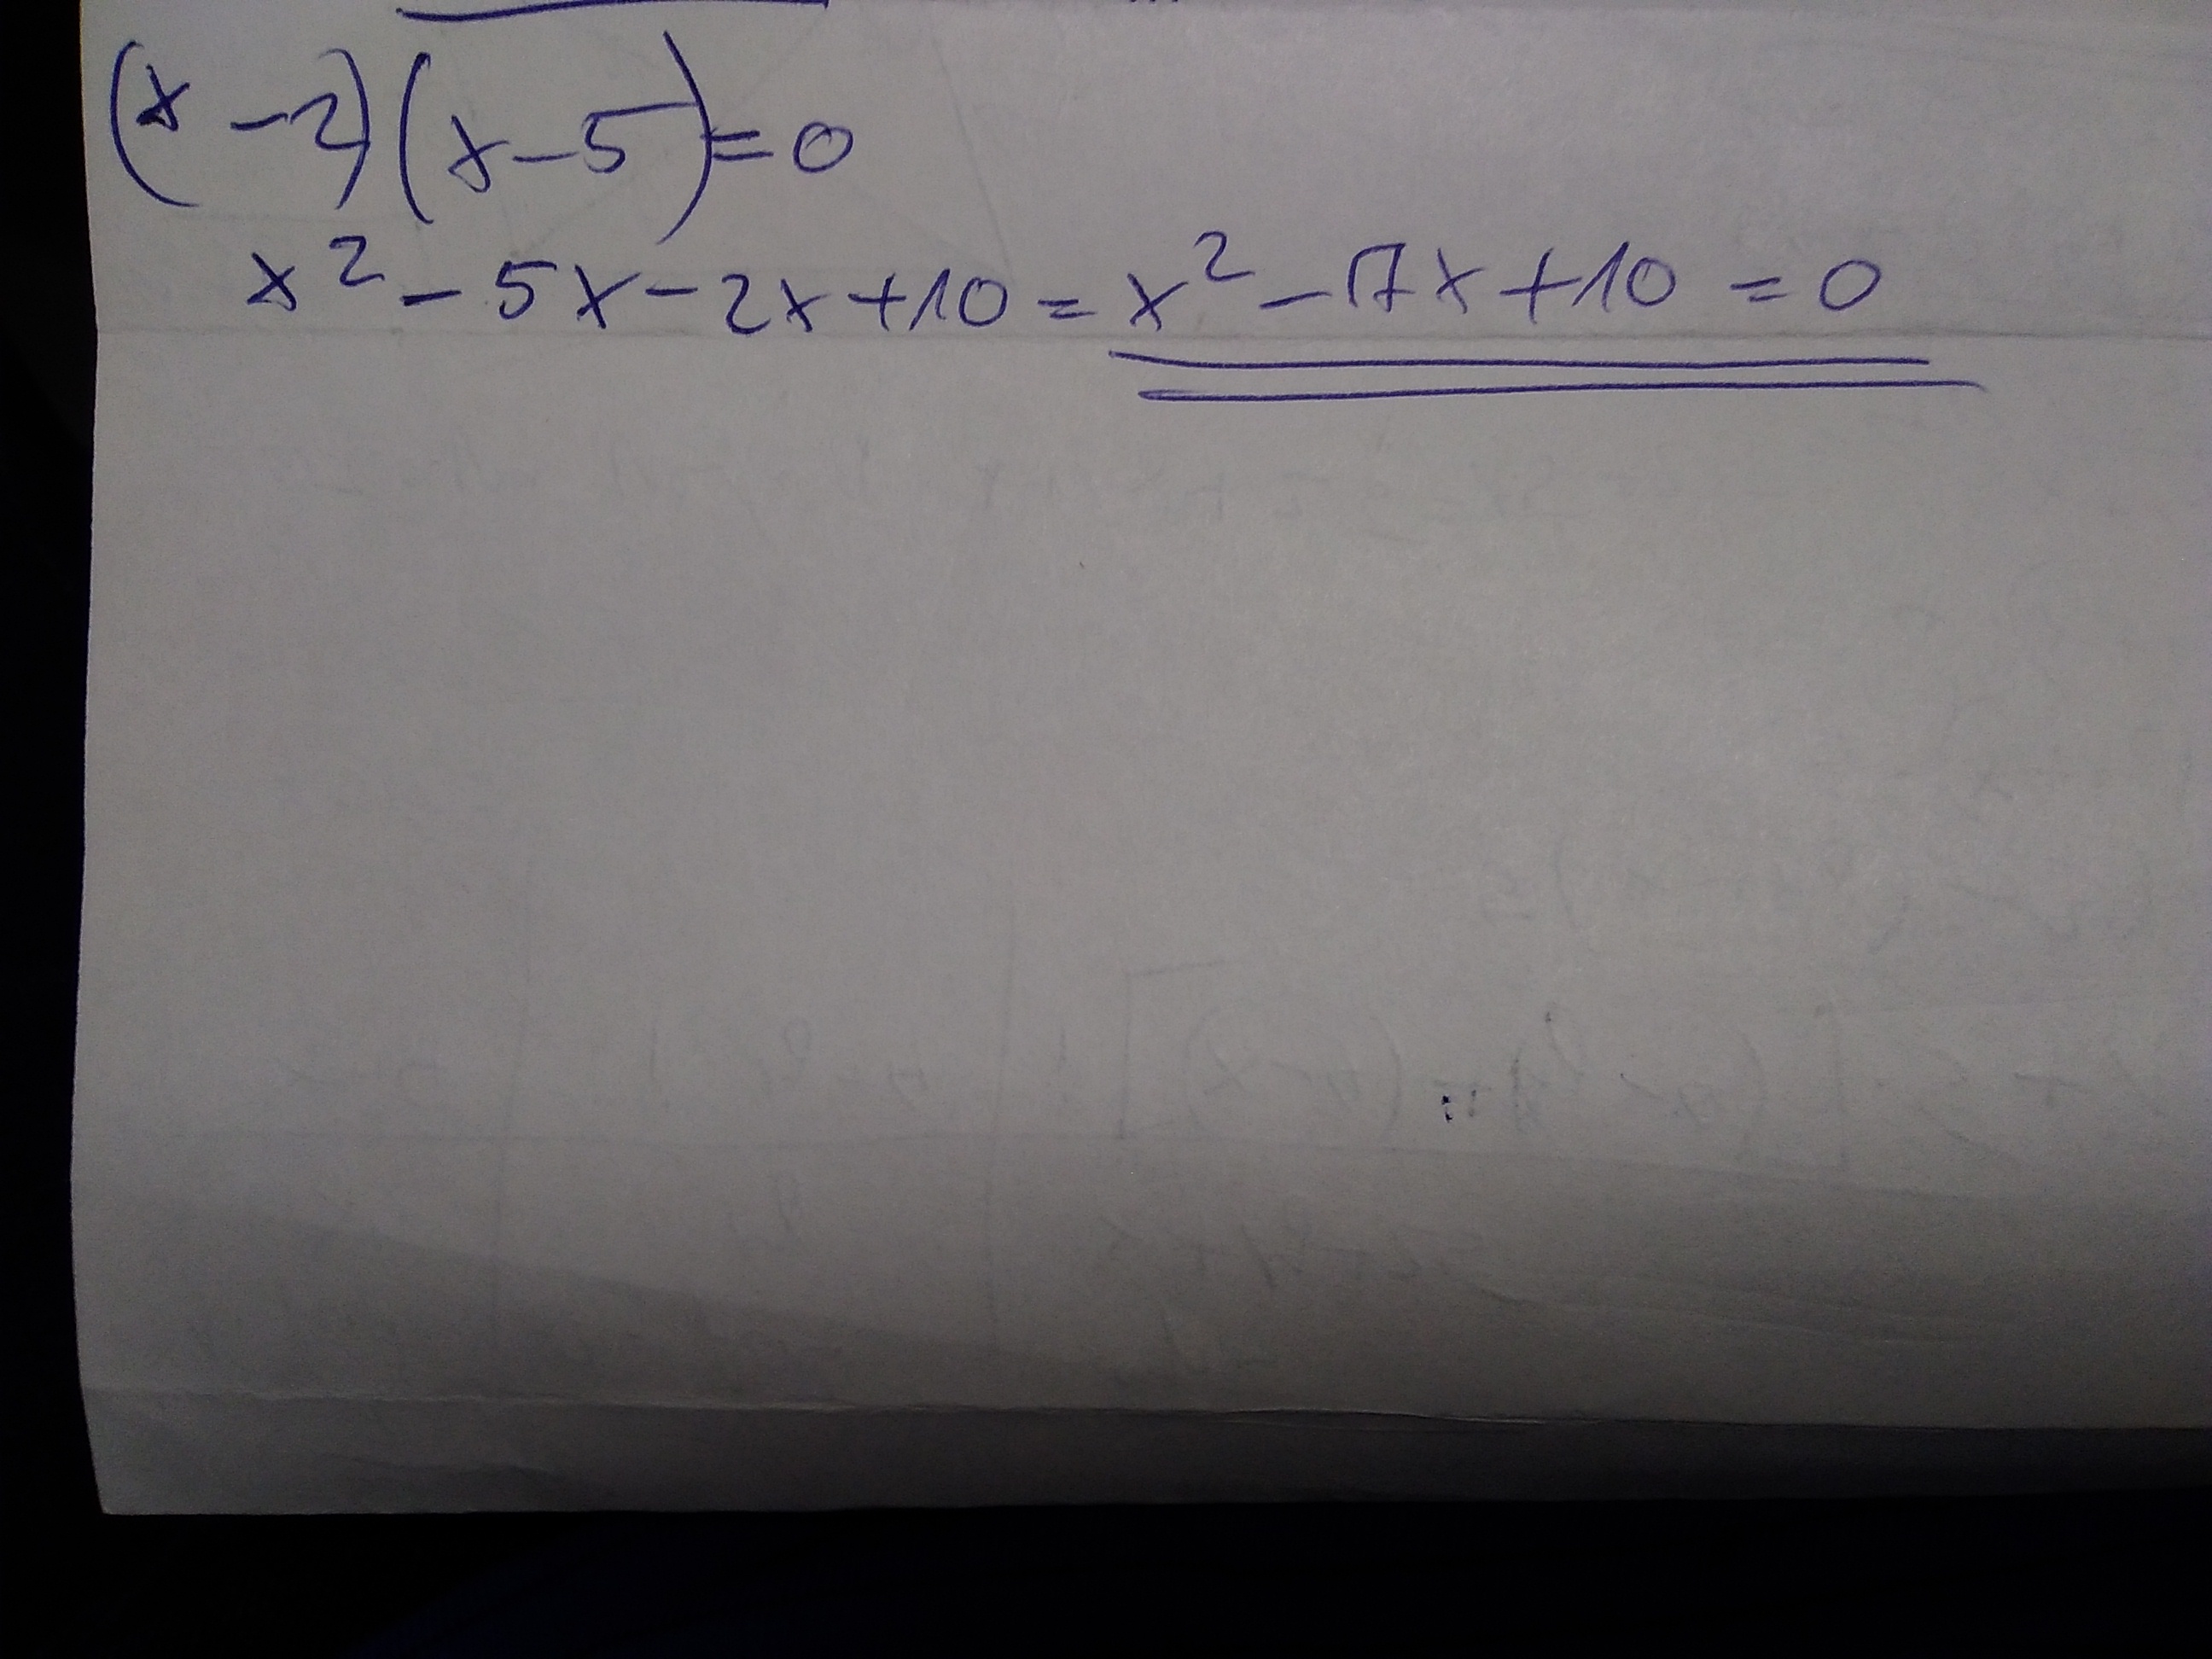 (x-2)(x-5)=0
x² - 5x - 2x + 10 = x² - 7x + 10 = 0